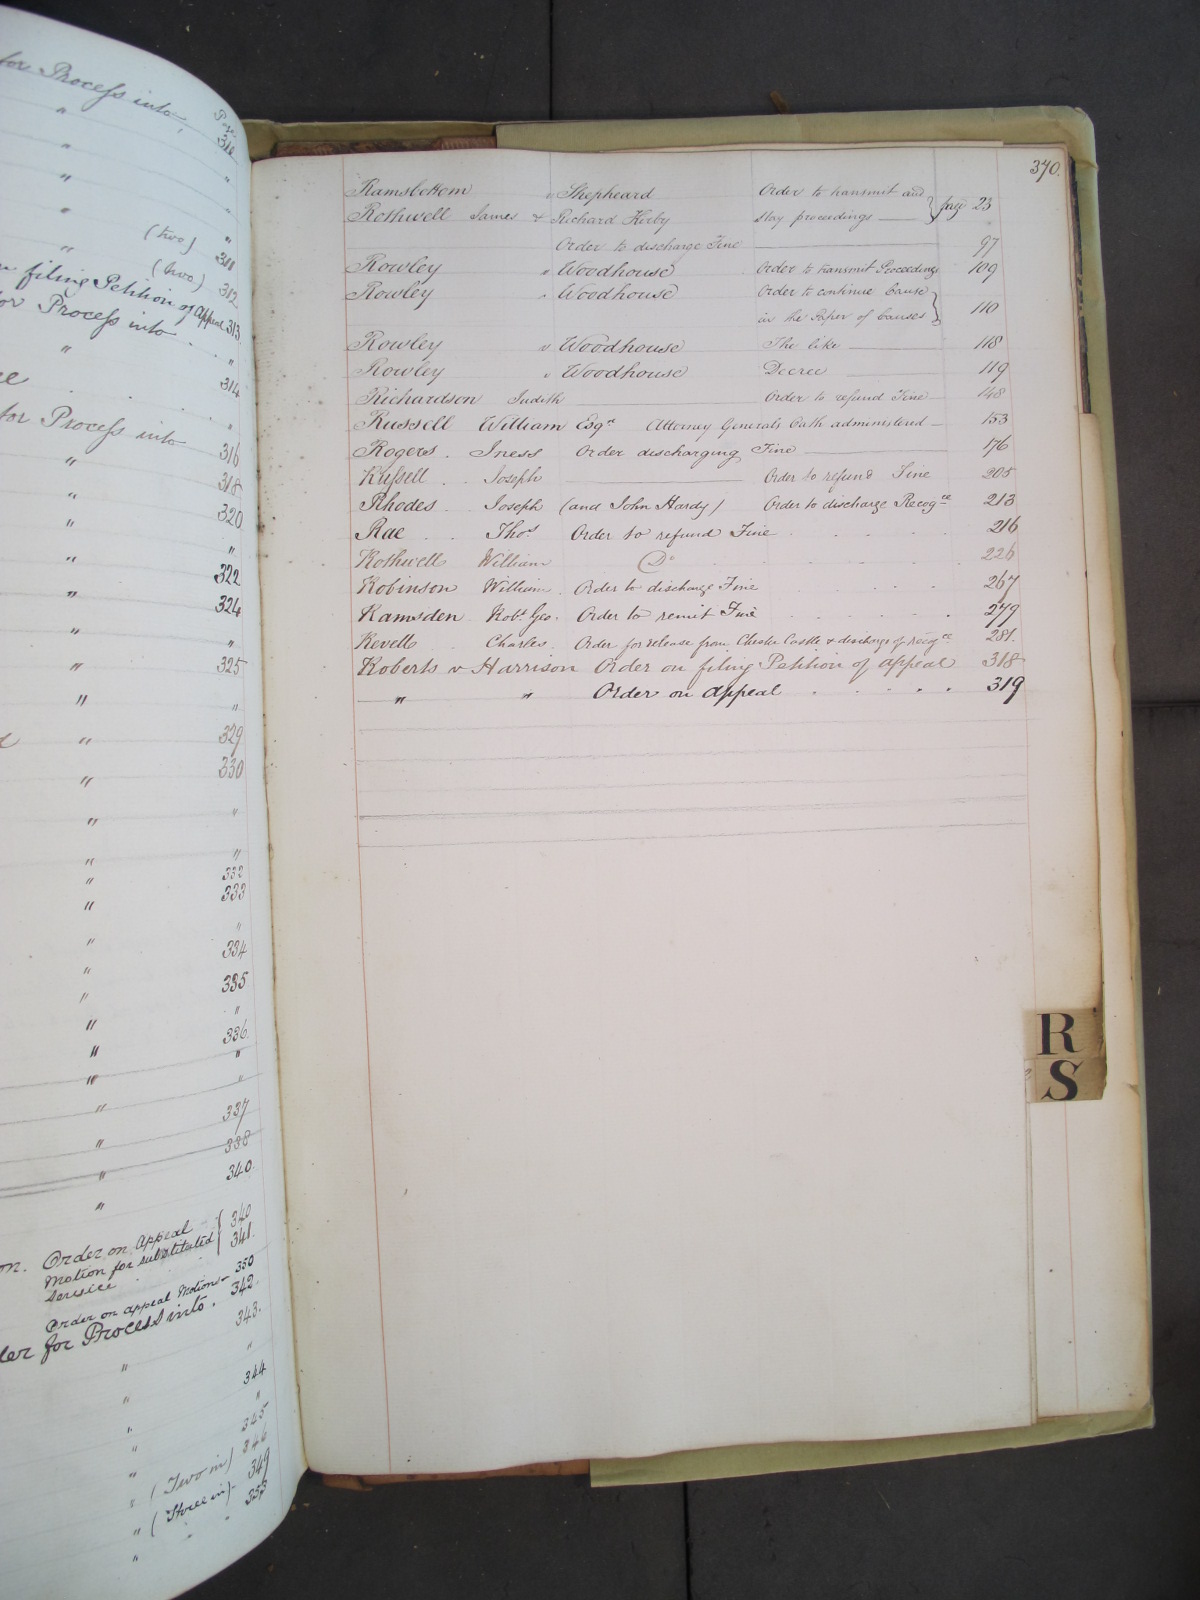 for Process into
Page
"
"
"
"
" (two) 311
(two) 312
filing Petition of Appeal 313
for Process into "
" 314
for Process into 316
" 318
" 320
" "
" 322
" 324
" "
" 325
" "
" 329
" 330
" "
" "
" 332
" 333
" "
" 334
" 335
" "
" 336
" "
" "
" 337
" 338
" 340
"
Order on Appeal 340
Motion for substituted 341
service
Order on appeal Motions 350
for Process into 342
343
" "
" 344
" "
" 345
" 346
" (Two in) 349
" (Three in) 353
"
370.
Ramsbottom v Shepheard Order to transmit and
Rothwell James & Richard Kirby stay proceedings page 23
Order to discharge Fine 97
Rowley v Woodhouse Order to transmit Proceedings 109
Rowley v Woodhouse Order to continue Cause
in the Paper of Causes 110
Rowley v Woodhouse The like 118
Rowley v Woodhouse Decree 119
Richardson Judith Order to refund Fine 148
Russell William Esqr Attorney Generals Oath administered 153
Rogers. Iness Order discharging Fine 176
Russell Joseph Order to refund Fine 205
Rhodes Joseph (and John Hardy) Order to discharge Recogce 213
Rae Thos. Order to refund Fine 216
Rothwell William Do 226
Robinson William Order to discharge Fine 267
Ramsden Robt Geo. Order to remit Fine 279
Revell Charles Order for release from Chester Castle & discharge of recogce 281.
Roberts v Harrison Order on filing Petition of appeal 318
" " Order on appeal 319
R
S